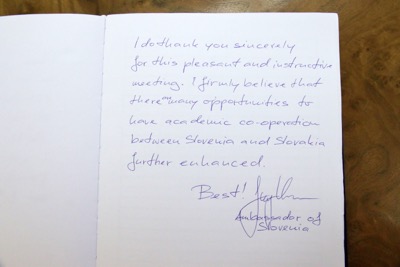 I do thank you sincerely
for this pleasant and instructive
meeting. I firmly believe that
there are many opportunities to
have academic co-operation
between Slovenia and Slovakia
further enhanced.
Best!
Ambassador of
Slovenia